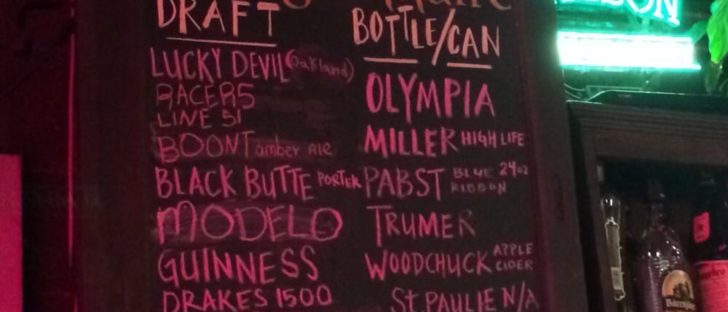 DRAFT
LUCKY DEVIL (Oakland)
RACER 5
LINE 51
BOONT amber ALE
BLACK BUTTE PORTER
MODELO
GUINNESS
DRAKES 1500
BOTTLE/CAN
OLYMPIA
MILLER HIGH LIFE
PABST BLUE RIBBON 24oz
TRUMER
WOODCHUCK APPLE CIDER
ST PAULIE N/A